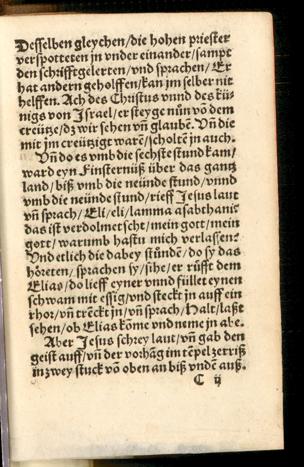 Desselben gleychen/die hohen priester
verspotteten jn vnder einander/sampt
den schrifftgelerten/vnd sprachen/Er
hat andern geholffen/kan jm selber nit
helffen. Ach des Christus vnnd des kü-
nigs von Israel/er steyge nůn võ dem
creütze/dz wir sehen vñ glaubē. Vñ die
mit jm creützigt warē/scholtē jn auch.
Vñ do es vmb die sechste stund kam/
ward eyn Finsternüß über das gantz
land/biß vmb die neünde stund/vnnd
vmb die neünde stund/rieff Jesus laut
vñ sprach/Eli/eli/lamma asabthani?
das ist verdolmetscht/mein gott/mein
gott/warumb hastu mich verlassen?
Vnd etlich die dabey stůnden/do sy das
höreten/sprachen sy/sihe/er rüfft dem
Elias/do lieff eyner vnnd füllet eynen
schwam mit essig/vnd steckt jn auff ein
rhor/vñ trēckt jn/vñ sprach/Halt/laßt
sehen/ob Elias kōme vnd neme jn abe.
Aber Jesus schrey laut/vñ gab den
geist auff/vñ der vorhāg im tēpel zerriß
in zwey stuck vō oben an biß vnden auß.
C ij